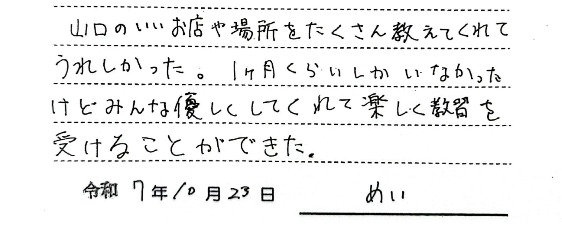 山口のいいお店や場所をたくさん教えてくれて
うれしかった。1ヶ月くらいしかいなかった
けどみんな優しくしてくれて楽しく教習を
受けることができた。
令和7年10月23日 めい